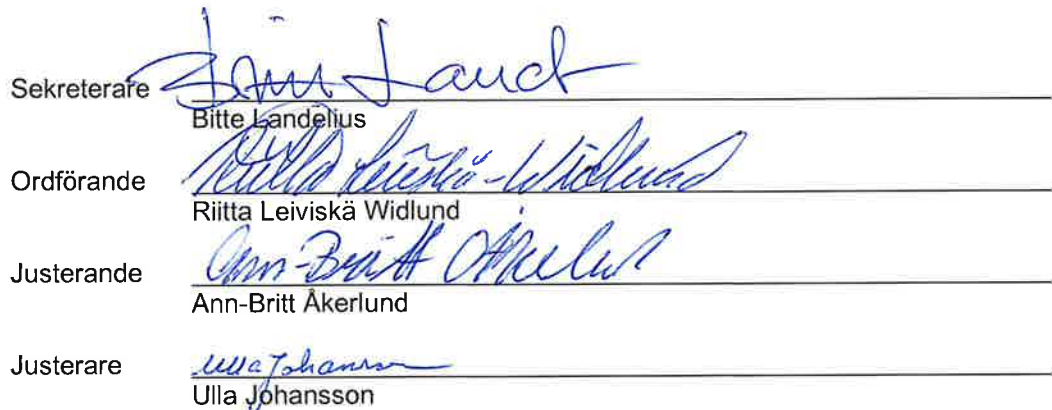 Sekreterare
Bitte Landelius
Ordförande Riitta Leiviskä-Widlund
Riitta Leiviskä Widlund
Justerande Ann-Britt Åkerlund
Ann-Britt Åkerlund
Justerare Ulla Johansson
Ulla Johansson